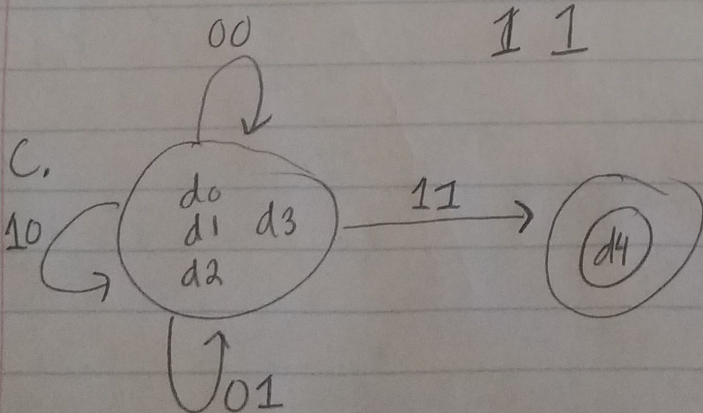 00
1 1
C.
10
d0
d1 d3
d2
11
d4
01